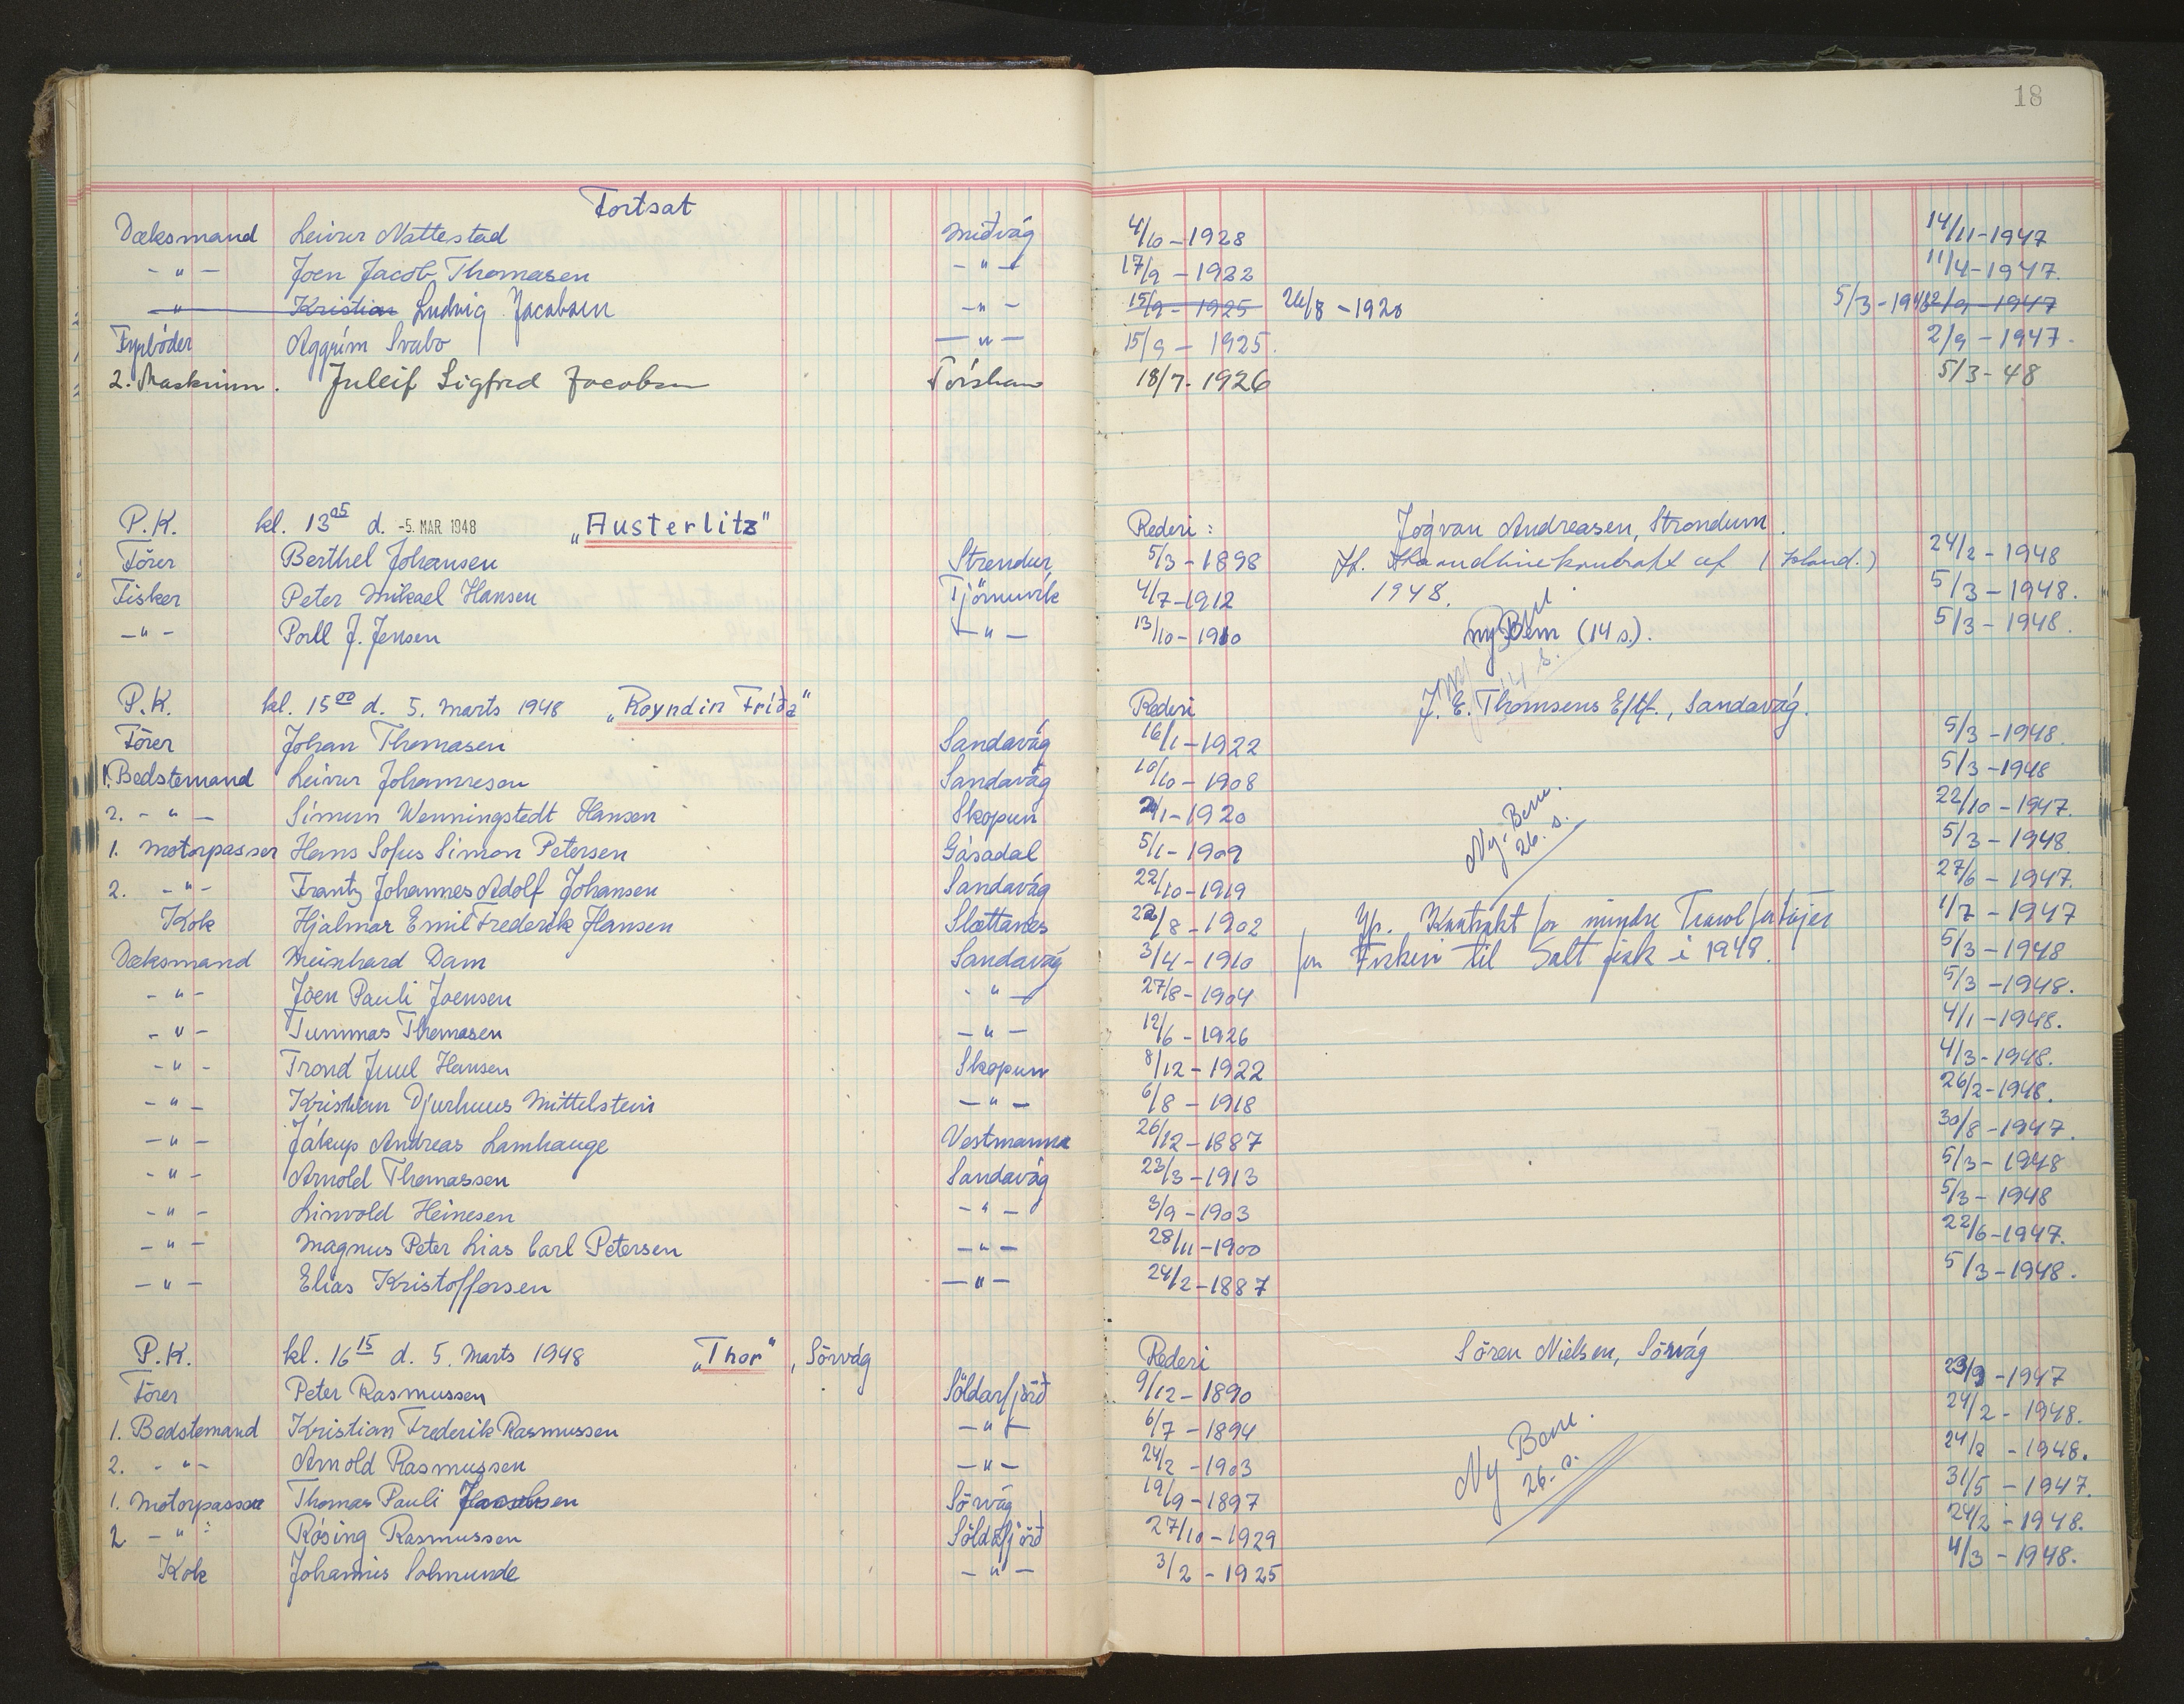 18
Fortsat
Dæksmand Leivur Nattestad Miðvág 4/10 - 1928 14/11-1947
- " - Joen Jacob Thomasen - " - 17/9 - 1922 11/4-1947.
- " - Kristian Ludvig Jacobsen - " - 15/9 - 1925 26/8 - 1920 5/3-1948 2/9-1947
Fyrbøder Aggrim Svabo - " - 15/9 - 1925. 2/9 - 1947.
2. Maskinm. Juleif Sigfred Jacobsen Tórshavn 18/7-1926 5/3-48
P.K. kl. 13 05 d. -5. MAR. 1948 "Austerlitz" Rederi: Jógvan Andreasen, Strondum.
Förer Berthel Johansen Strendur 5/3 - 1898 Jf. Haandlinekontrakt af (Island.) 24/2 - 1948
Fisker Peter Mikael Hansen Tjörnuvik 4/7-1912 1948. 5/3 - 1948.
- " - Poull J. Jensen - " - 13/10 - 1910 ny Bem (14 s.). 5/3 - 1948.
P.K. kl. 15 00 d. 5. Marts 1948 "Royndin Fríða" Rederi J. E. Thomsens Eftf., Sandavág.
Förer Johan Thomasen Sandavág 16/1-1922 5/3-1948.
1. Bedstemand Leivur Johannesen Sandavág 10/10 - 1908 5/3-1948
2. - " - Símun Wenningstedt Hansen Skopun 2/1-1920 Ny. Bem. 22/10 - 1947.
1. Motorpasser Hans Sofus Simon Petersen Gásadal 5/1-1909 26. s. 5/3 - 1948.
2. - " - Frantz Johannes Adolf Johansen Sandavág 22/10-1919 27/6 - 1947.
Kok Hjalmar Emil Frederik Hansen Slættanes 22/8 - 1902 Jf. Kontrakt for mindre Trawl fartöjer 1/7 - 1947
Dæksmand Meinhard Dam Sandavág 3/4 - 1910 for Fiskeri til Saltfisk i 1948. 5/3 - 1948
- " - Joen Pauli Joensen - " - 27/8-1904 5/3 - 1948.
- " - Tummas Thomasen - " - 12/6 - 1926 4/1 - 1948.
- " - Trond Juul Hansen Skopun 8/12 - 1922 4/3-1948.
- " - Kristian Djurhuus Mittelstein - " - 6/8 - 1918 26/2-1948.
- " - Jákup Andreas Lamhauge Vestmanna 26/12-1887 30/8-1947.
- " - Arnold Thomassen Sandavág 23/3-1913 5/3- 1948
- " - Linvold Heinesen - " - 3/9 - 1903 5/3 - 1948
- " - Magnus Peter Lias Carl Petersen - " - 28/11-1900 22/6-1947.
- " - Elias Kristoffersen - " - 24/2-1887 5/3-1948.
P.K. kl. 16 15 d. 5. Marts 1948 "Thor", Sörvág Rederi Sören Nielsen, Sörvág
Förer Peter Rasmussen Söldarfjörð 9/12-1890 23/9 -1947
1. Bedstemand Kristian Frederik Rasmussen - " - 6/7 - 1894 Ny Bem. 24/2 - 1948.
2. - " - Arnold Rasmussen - " - 24/2 -1903 26. s. 24/2 - 1948.
1. Motorpasser Thomas Pauli Jacobsen Sörvág 19/9-1897 31/5 - 1947.
2 - " - Rósing Rasmussen Söldafjörð 27/10-1929 24/2 - 1948.
Kok Johannis Solmunde - " - 3/2 - 1925 4/3 - 1948.